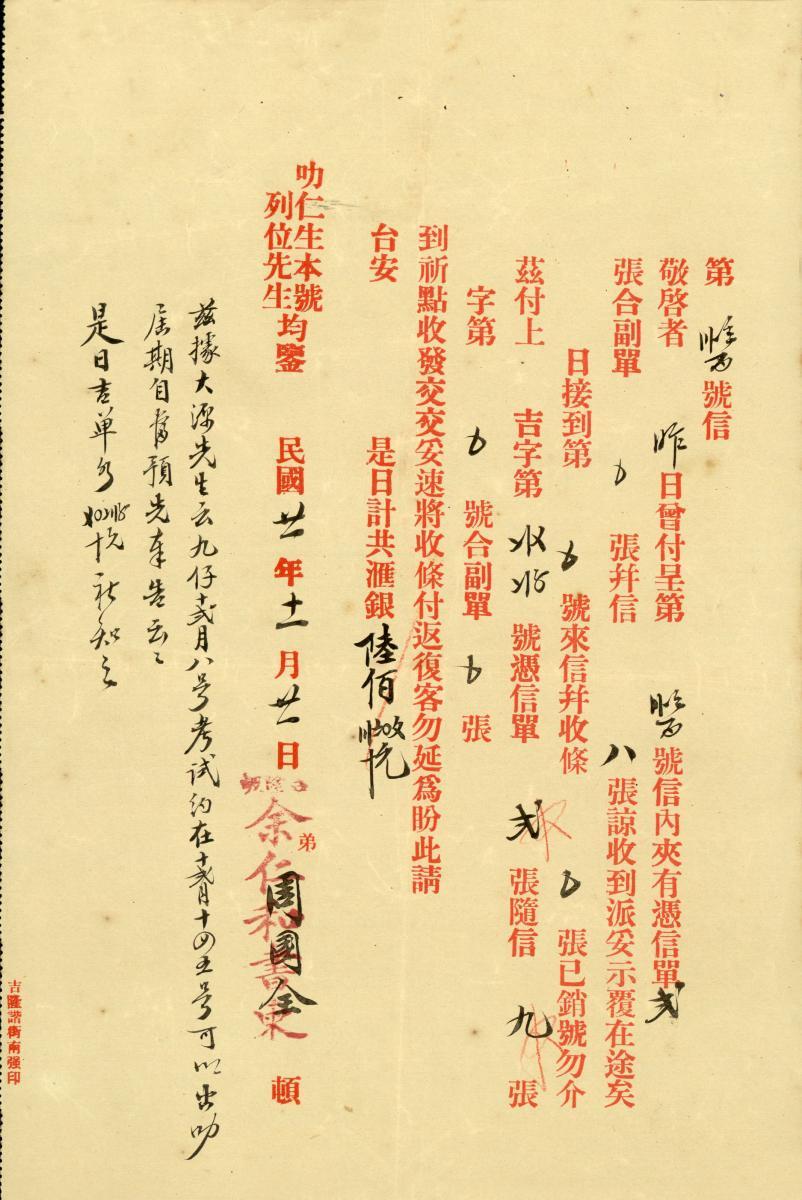 第 號信
敬啓者 昨 日曾付呈第 號信內夾有憑信單 弍
張合副單 張幷信 八 張諒收到派妥示覆在途矣
日接到第 號來信幷收條 張已銷號勿介
茲付上 吉字第 號憑信單 弍 張隨信 九 張
字第 號合副單 張
到祈點收發交交妥速將收條付返復客勿延爲盼此請
台安 是日計共滙銀 陸佰
叻仁生本號
列位先生
均鑒 民國 廿一 年 十一 月 廿一 日 弟 周國全 頓
余仁和書柬
茲據大源先生云九仔十弍月八号考試約在十弍月十四五号可以出叻
屆期自當預先奉告云云
是日吉单 祈知之
吉隆諧街南强印